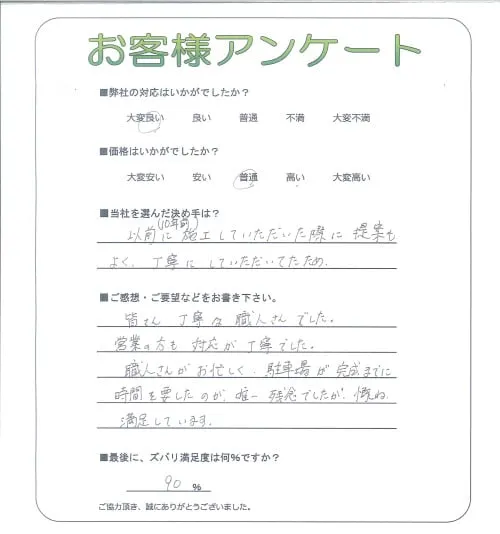 お客様アンケート
■弊社の対応はいかがでしたか？
大変良い 良い 普通 不満 大変不満
■価格はいかがでしたか？
大変安い 安い 普通 高い 大変高い
■当社を選んだ決め手は？
(10年前)
以前に施工していただいた際に提案も
よく、丁寧にしていただいてたため。
■ご感想・ご要望などをお書き下さい。
皆さん丁寧な職人さんでした。
営業の方も対応が丁寧でした。
職人さんがお忙しく、駐車場が完成までに
時間を要したのが、唯一残念でしたが、概ね
満足しています。
■最後に、ズバリ満足度は何%ですか？
90 %
ご協力頂き、誠にありがとうございました。